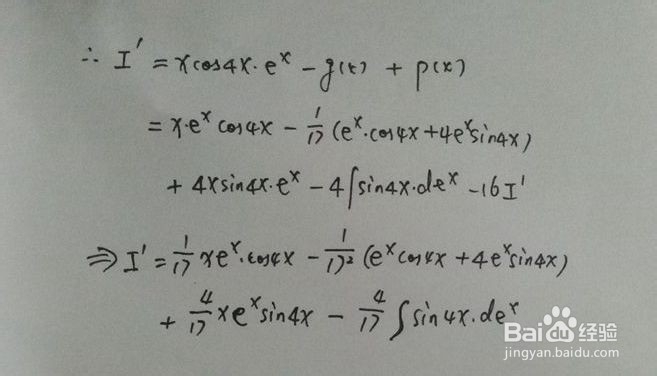 ∴ I' = xcos4x·e^x − g(x) + p(x)
= x·e^x cos4x − 1/17 (e^x·cos4x + 4e^x sin4x)
+ 4x sin4x·e^x − 4∫sin4x·de^x − 16I'
⇒ I' = 1/17 xe^x·cos4x − 1/17² (e^x cos4x + 4e^x sin4x)
+ 4/17 xe^x sin4x − 4/17 ∫sin4x·de^x
Baidu经验
jingyan.baidu.com